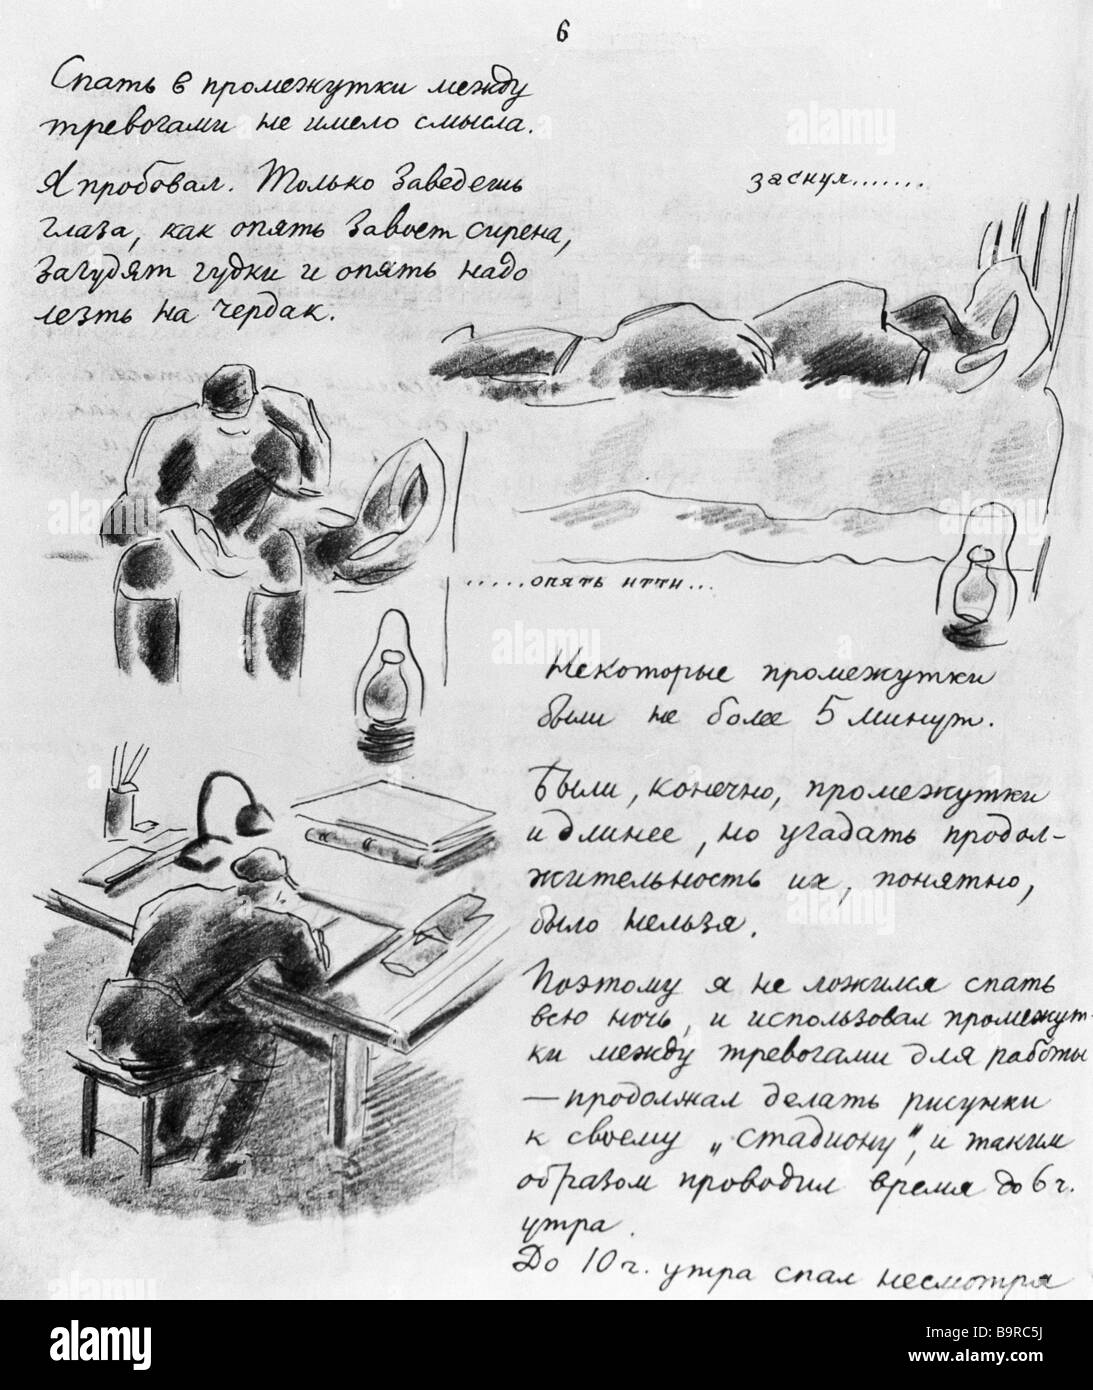 6
Спать в промежутки между
тревогами не имело смысла.
Я пробовал. Только заведешь
глаза, как опять завоет сирена,
загудят гудки и опять надо
лезть на чердак.
заснул.......
.....опять итти...
Некоторые промежутки
были не более 5 минут.
Были, конечно, промежутки
и длинее, но угадать продол-
жительность их, понятно,
было нельзя.
Поэтому я не ложился спать
всю ночь, и использовал промежут-
ки между тревогами для работы
— продолжал делать рисунки
к своему „стадиону", и таким
образом проводил время до 6 ч.
утра.
До 10 ч. утра спал несмотря
alamy
alamy
alamy
alamy
alamy
alamy
alamy
Image ID: B9RC5J
www.alamy.com